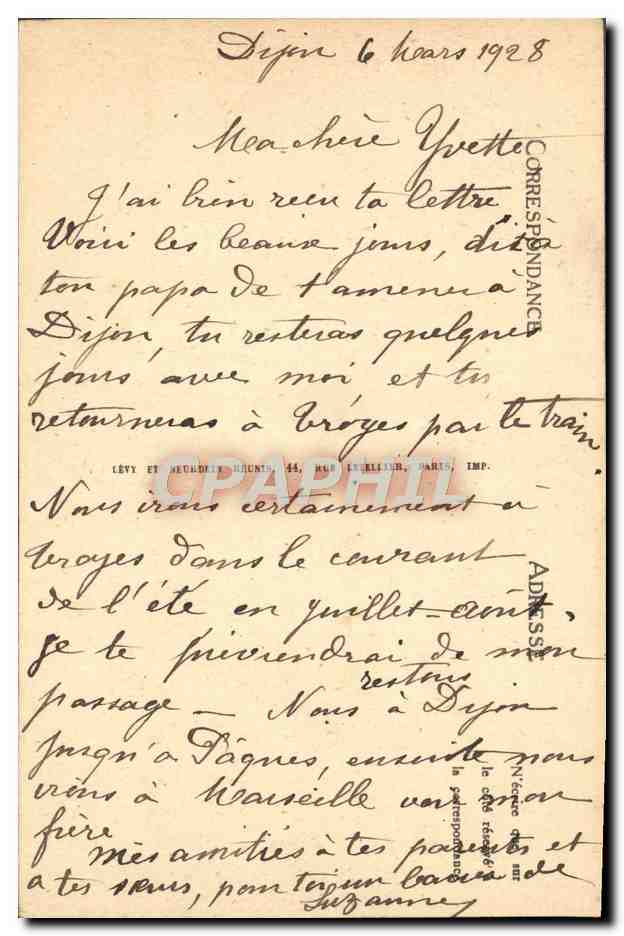 Dijon 6 Mars 1928
Ma chère Yvette
J'ai bien reçu ta lettre
Voici les beaux jours, dis à
ton papa de t'amener à
Dijon, tu resteras quelques
jours avec moi et tu
retourneras à Troyes par le train.
LÉVY ET NEURDEIN RÉUNIS, 44, RUE LETELLIER, PARIS, IMP.
CPAPHIL
Nous irons certainement à
Troyes dans le courant
de l'été en juillet-août,
je te préviendrai de mon
passage - Nous restons à Dijon
jusqu'à Pâques, ensuite nous
irons à Marseille voir mon
frère
Mes amitiés à tes parents et
à tes sœurs, pour toi un baiser de
Suzanne
CORRESPONDANCE
ADRESSE
N'écrire que sur
le côté réservé à
la correspondance